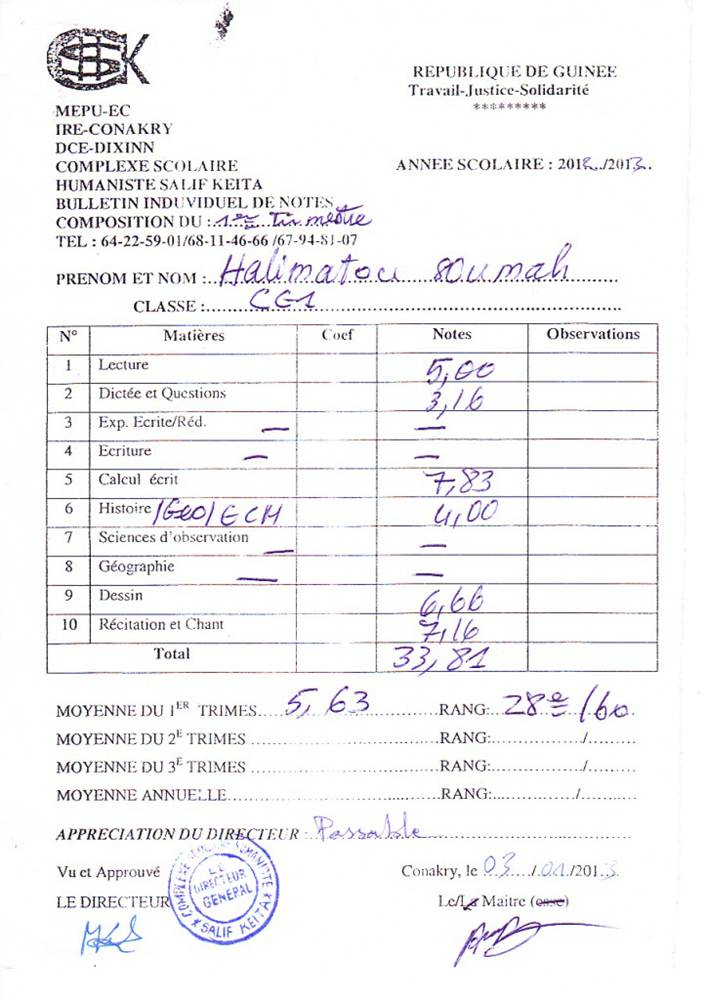 HSK
REPUBLIQUE DE GUINEE
Travail-Justice-Solidarité
*********
MEPU-EC
IRE-CONAKRY
DCE-DIXINN
COMPLEXE SCOLAIRE
HUMANISTE SALIF KEITA
ANNEE SCOLAIRE : 2012../2013..
BULLETIN INDUVIDUEL DE NOTES
COMPOSITION DU : 1er Trimestre
TEL : 64-22-59-01/68-11-46-66 /67-94-81-07
PRENOM ET NOM : Halimatou Soumah
CLASSE : CE1
N° Matières Coef Notes Observations
1 Lecture 5,00
2 Dictée et Questions 3,16
3 Exp. Ecrite/Réd. — —
4 Ecriture — —
5 Calcul écrit 7,83
6 Histoire /Géo/ECM 4,00
7 Sciences d'observation — —
8 Géographie — —
9 Dessin 6,66
10 Récitation et Chant 7,16
Total 33,81
MOYENNE DU 1ER TRIMES.... 5,63 RANG: 28e /60
MOYENNE DU 2E TRIMES RANG: /
MOYENNE DU 3E TRIMES RANG: /
MOYENNE ANNUELLE RANG: /
APPRECIATION DU DIRECTEUR : Passable
Vu et Approuvé Conakry, le 03 / 01 /2013
LE DIRECTEUR Le/La Maitre (esse)
COMPLEXE SCOLAIRE HUMANISTE
LE DIRECTEUR GENERAL
* SALIF KEITA *